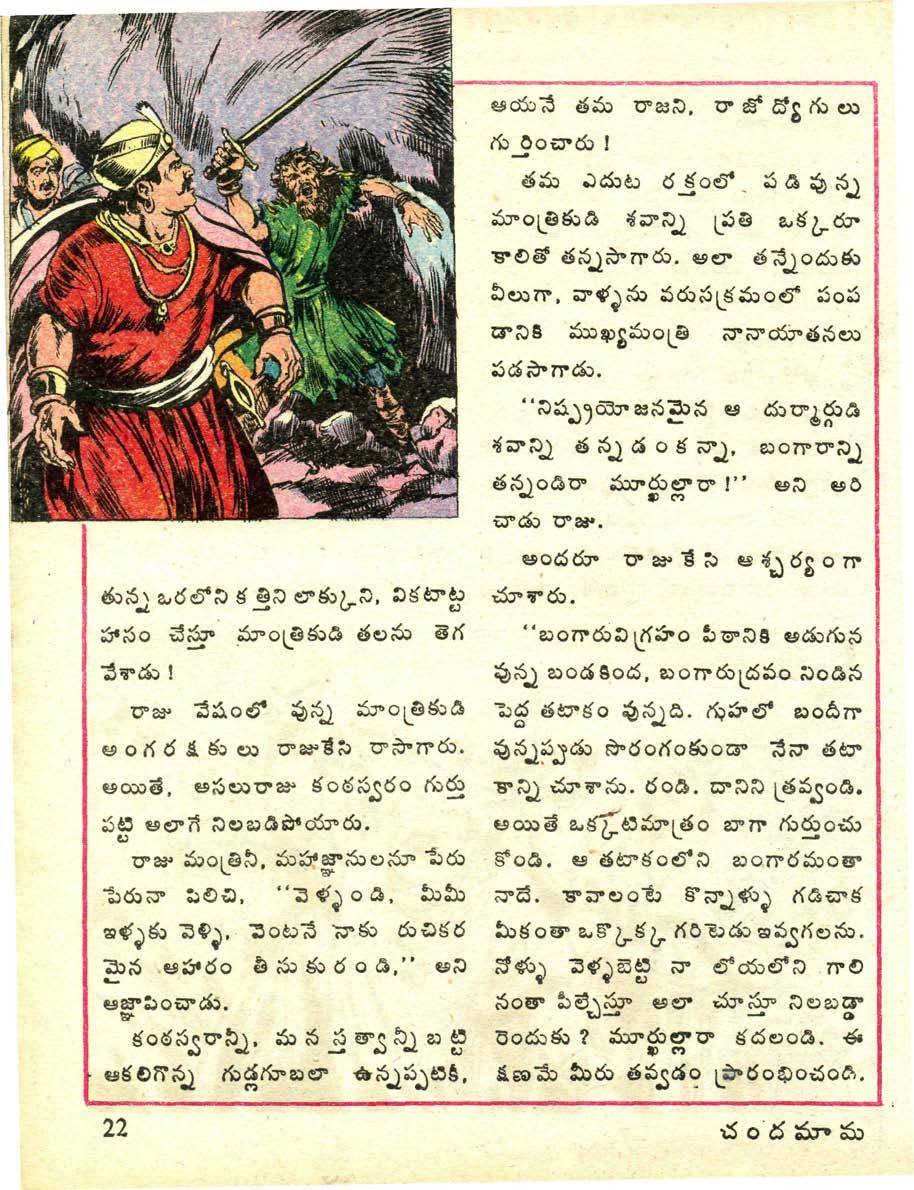 తున్న ఒరలోని కత్తిని లాక్కుని, వికటాట్ట
హాసం చేస్తూ మాంత్రికుడి తలను తెగ
వేశాడు !
రాజు వేషంలో వున్న మాంత్రికుడి
అంగరక్షకులు రాజుకేసి రాసాగారు.
అయితే, అసలురాజు కంఠస్వరం గుర్తు
పట్టి అలాగే నిలబడిపోయారు.
రాజు మంత్రినీ, మహాజ్ఞానులనూ పేరు
పేరునా పిలిచి, ‘‘వెళ్ళండి, మీమీ
ఇళ్ళకు వెళ్ళి, వెంటనే నాకు రుచికర
మైన ఆహారం తీసుకురండి,’’ అని
ఆజ్ఞాపించాడు.
కంఠస్వరాన్నీ, మనస్తత్వాన్నీ బట్టి
ఆకలిగొన్న గుడ్లగూబలా ఉన్నప్పటికీ,
ఆయనే తమ రాజని, రాజోద్యోగులు
గుర్తించారు !
తమ ఎదుట రక్తంలో పడివున్న
మాంత్రికుడి శవాన్ని ప్రతి ఒక్కరూ
కాలితో తన్నసాగారు. అలా తన్నేందుకు
వీలుగా, వాళ్ళను వరుసక్రమంలో పంప
డానికి ముఖ్యమంత్రి నానాయాతనలు
పడసాగాడు.
‘‘నిష్ప్రయోజనమైన ఆ దుర్మార్గుడి
శవాన్ని తన్నడంకన్నా, బంగారాన్ని
తన్నండిరా మూర్ఖుల్లారా !’’ అని అరి
చాడు రాజు.
అందరూ రాజుకేసి ఆశ్చర్యంగా
చూశారు.
‘‘బంగారువిగ్రహం పీఠానికి అడుగున
వున్న బండకింద, బంగారుద్రవం నిండిన
పెద్ద తటాకం వున్నది. గుహలో బందీగా
వున్నప్పుడు సొరంగంకుండా నేనా తటా
కాన్ని చూశాను. రండి. దానిని త్రవ్వండి.
అయితే ఒక్కటిమాత్రం బాగా గుర్తుంచు
కోండి. ఆ తటాకంలోని బంగారమంతా
నాదే. కావాలంటే కొన్నాళ్ళు గడిచాక
మీకంతా ఒక్కొక్క గరిటెడు ఇవ్వగలను.
నోళ్ళు వెళ్ళబెట్టి నా లోయలోని గాలి
నంతా పీల్చేస్తూ అలా చూస్తూ నిలబడ్డా
రెందుకు ? మూర్ఖుల్లారా కదలండి. ఈ
క్షణమే మీరు తవ్వడం ప్రారంభించండి.
22
చందమామ